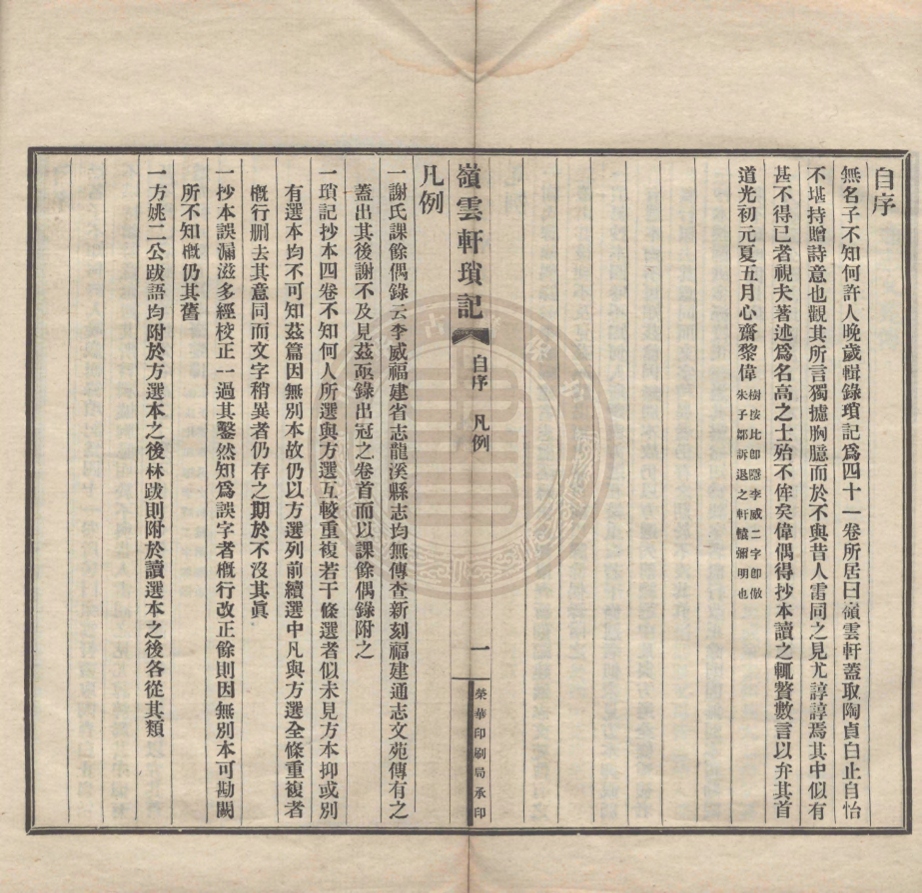 自序
無名子不知何許人晚歲輯錄瑣記爲四十一卷所居曰嶺雲軒蓋取陶貞白止自怡
不堪持贈詩意也觀其所言獨攄胸臆而於不與昔人雷同之見尤諄諄焉其中似有
甚不得已者視夫著述爲名高之士殆不侔矣偉偶得抄本讀之輒贅數言以弁其首
道光初元夏五月心齋黎偉
樹按比卽隱李威二字卽倣
朱子鄒訢退之軒轅彌明也
嶺雲軒瑣記 自序 凡例 一 榮華印刷局承印
凡例
一謝氏課餘偶錄云李威福建省志龍溪縣志均無傳查新刻福建通志文苑傳有之
蓋出其後謝不及見茲亟錄出冠之卷首而以課餘偶錄附之
一瑣記抄本四卷不知何人所選與方選互較重複若干條選者似未見方本抑或別
有選本均不可知茲篇因無別本故仍以方選列前續選中凡與方選全條重複者
槪行删去其意同而文字稍異者仍存之期於不沒其眞
一抄本誤漏滋多經校正一過其鑿然知爲誤字者槪行改正餘則因無別本可勘闕
所不知槪仍其舊
一方姚二公跋語均附於方選本之後林跋則附於讀選本之後各從其類